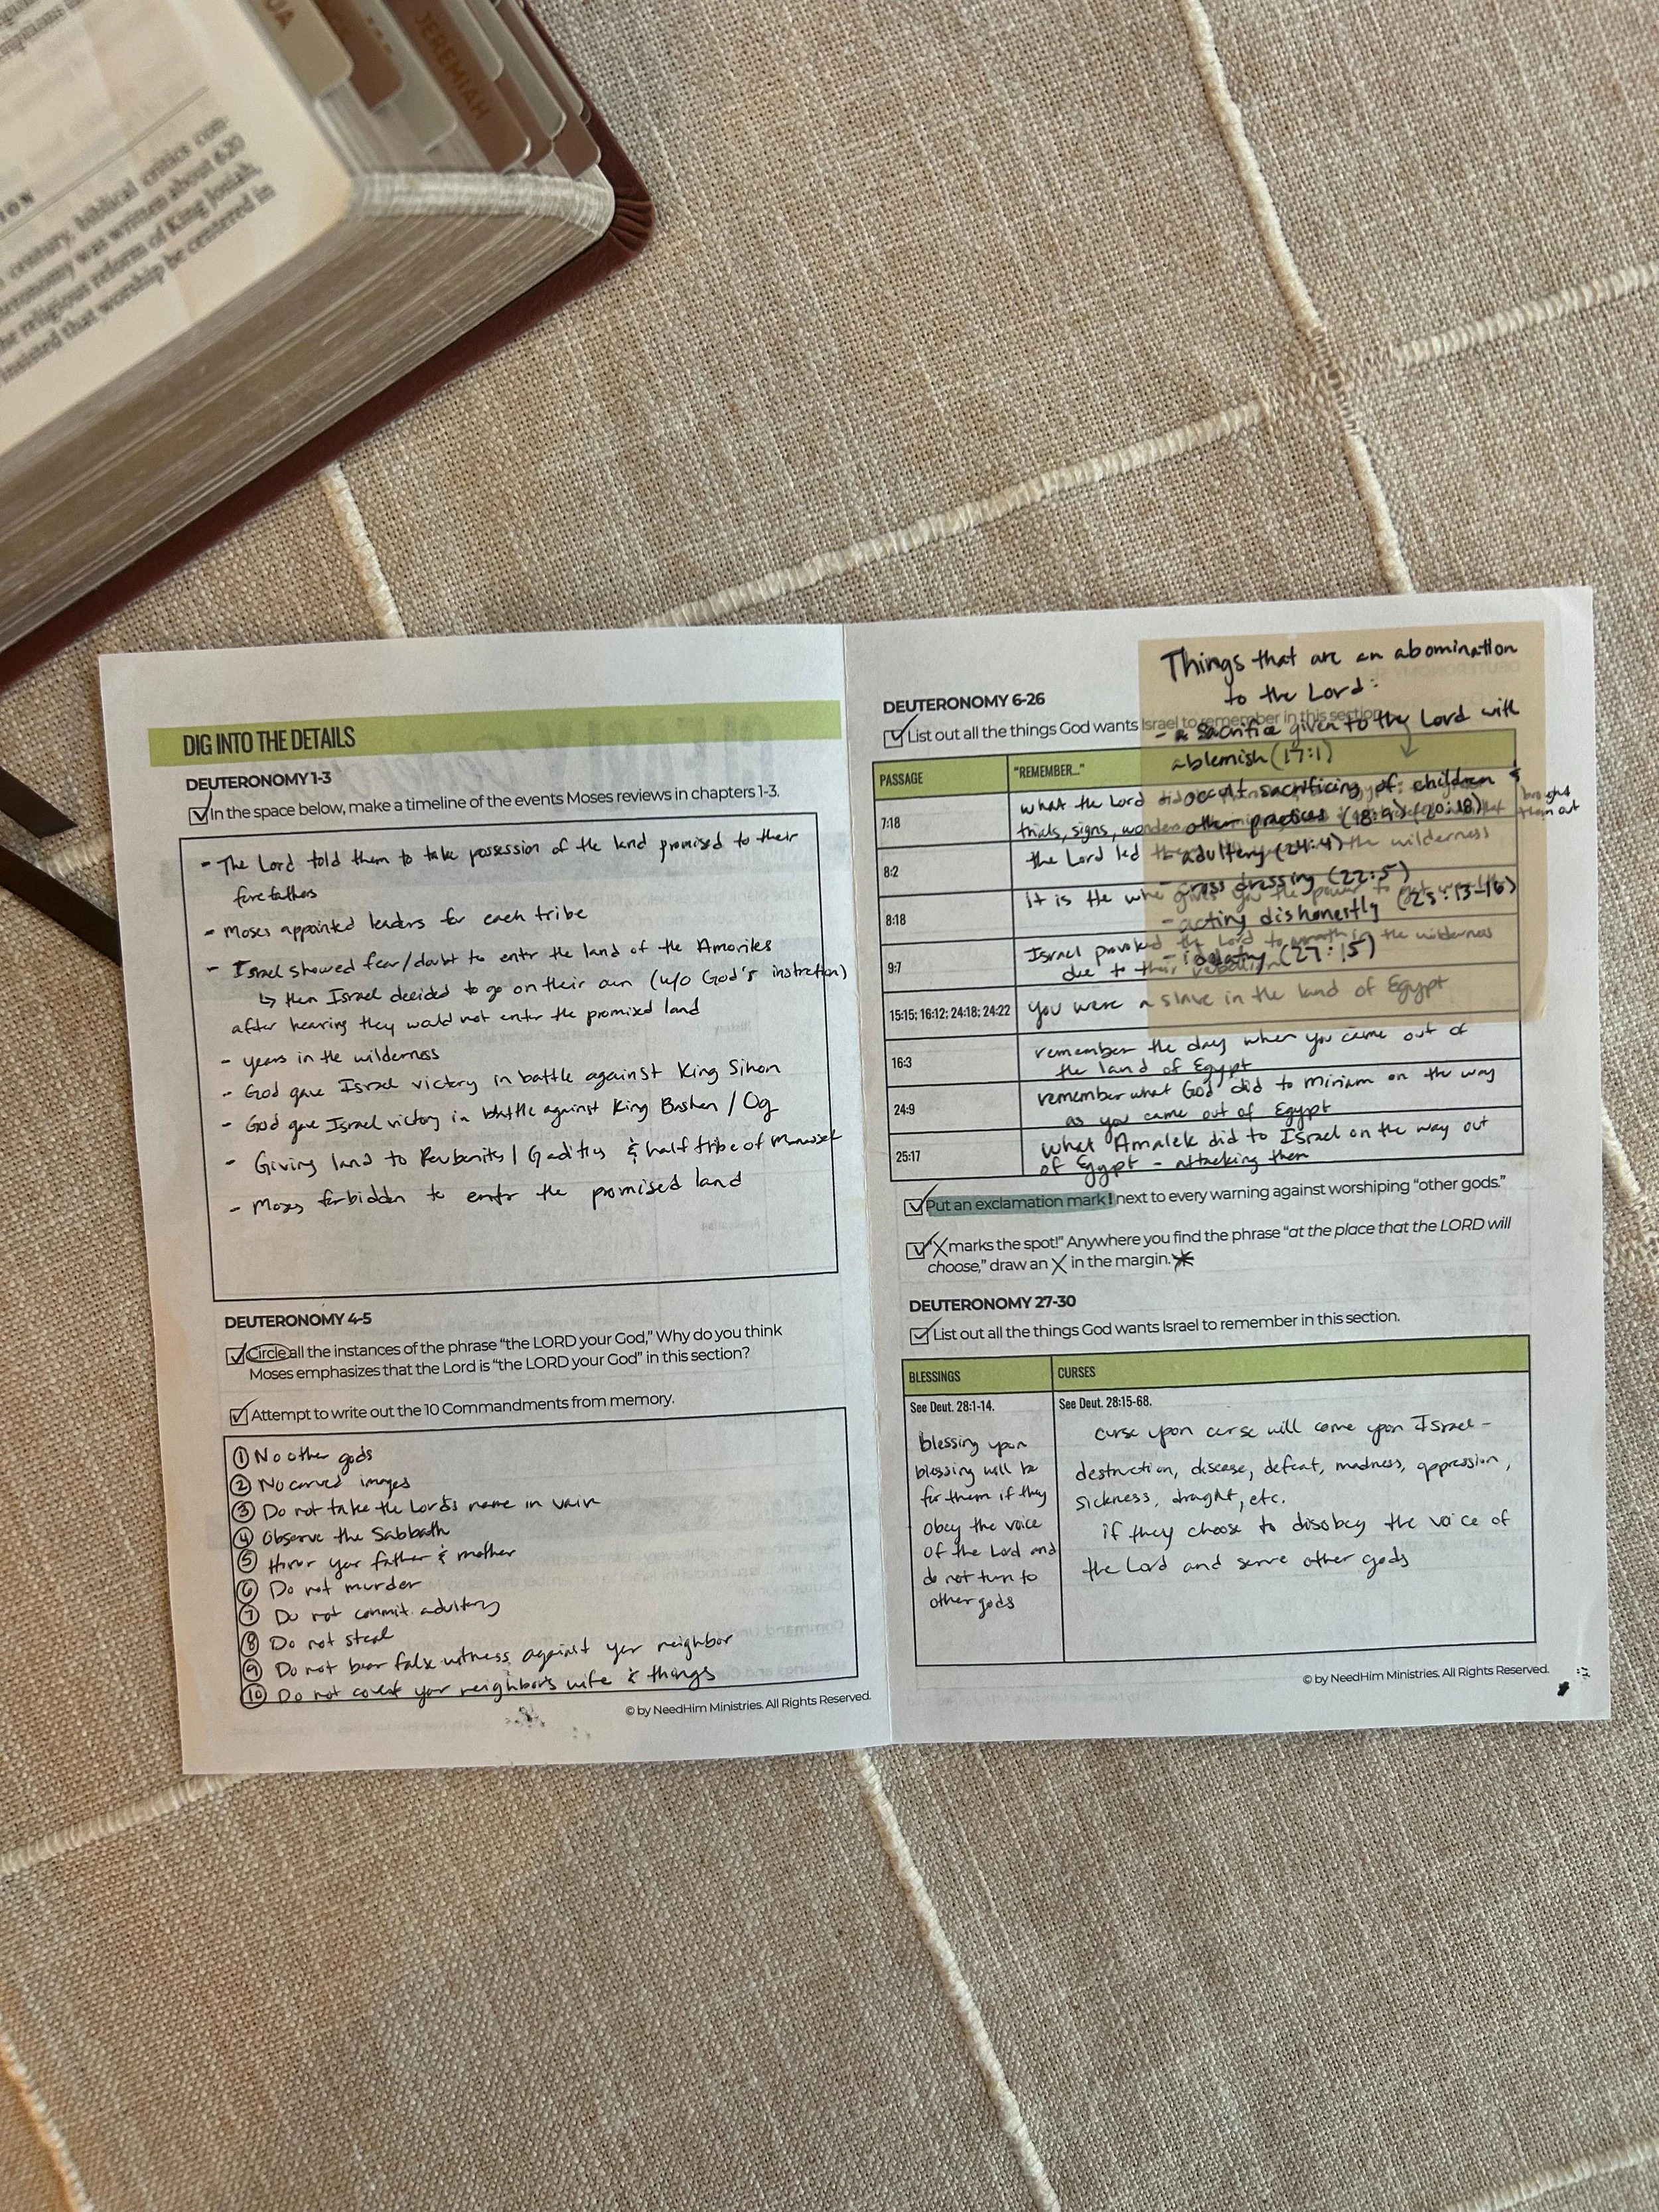 JEREMIAH
century, biblical critics con-
was written about 620
religious reform of King Josiah,
insisted that worship be centered in
DIG INTO THE DETAILS
DEUTERONOMY 1-3
In the space below, make a timeline of the events Moses reviews in chapters 1-3.
- The Lord told them to take possession of the land promised to their
forefathers
- Moses appointed leaders for each tribe
- Israel showed fear/doubt to enter the land of the Amorites
↳ then Israel decided to go on their own (w/o God's instruction)
after hearing they would not enter the promised land
- years in the wilderness
- God gave Israel victory in battle against King Sihon
- God gave Israel victory in battle against King Bashan / Og
- Giving land to Reubenites / Gadites & half tribe of Manasseh
- Moses forbidden to enter the promised land
DEUTERONOMY 4-5
Circle all the instances of the phrase “the LORD your God,” Why do you think
Moses emphasizes that the Lord is “the LORD your God” in this section?
Attempt to write out the 10 Commandments from memory.
① No other gods
② No carved images
③ Do not take the Lord's name in vain
④ Observe the Sabbath
⑤ Honor your father & mother
⑥ Do not murder
⑦ Do not commit adultery
⑧ Do not steal
⑨ Do not bear false witness against your neighbor
⑩ Do not covet your neighbor's wife & things
© by NeedHim Ministries. All Rights Reserved.
Things that are an abomination
to the Lord:
- a sacrifice given to the Lord with
a blemish (17:1)
- occult sacrificing of children &
other practices (18:9) (20:18)
- adultery (24:4)
- cross dressing (22:5)
- acting dishonestly (25:13-16)
- idolatry (27:15)
DEUTERONOMY 6-26
List out all the things God wants Israel to remember in this section.
PASSAGE
"REMEMBER..."
7:18
what the Lord did
trials, signs, wonders
brought
them out
8:2
the Lord led the wilderness
8:18
it is He who gives you the power to
9:7
Israel provoked the Lord to wrath in the wilderness
due to their rebellion
15:15; 16:12; 24:18; 24:22
you were a slave in the land of Egypt
16:3
remember the day when you came out of
the land of Egypt
24:9
remember what God did to Miriam on the way
as you came out of Egypt
25:17
what Amalek did to Israel on the way out
of Egypt - attacking them
Put an exclamation mark! next to every warning against worshiping “other gods.”
“X marks the spot!” Anywhere you find the phrase “at the place that the LORD will
choose,” draw an X in the margin.
DEUTERONOMY 27-30
List out all the things God wants Israel to remember in this section.
BLESSINGS
CURSES
See Deut. 28:1-14.
See Deut. 28:15-68.
blessing upon
blessing will be
for them if they
obey the voice
of the Lord and
do not turn to
other gods
curse upon curse will come upon Israel -
destruction, disease, defeat, madness, oppression,
sickness, drought, etc.
if they choose to disobey the voice of
the Lord and serve other gods
© by NeedHim Ministries. All Rights Reserved.